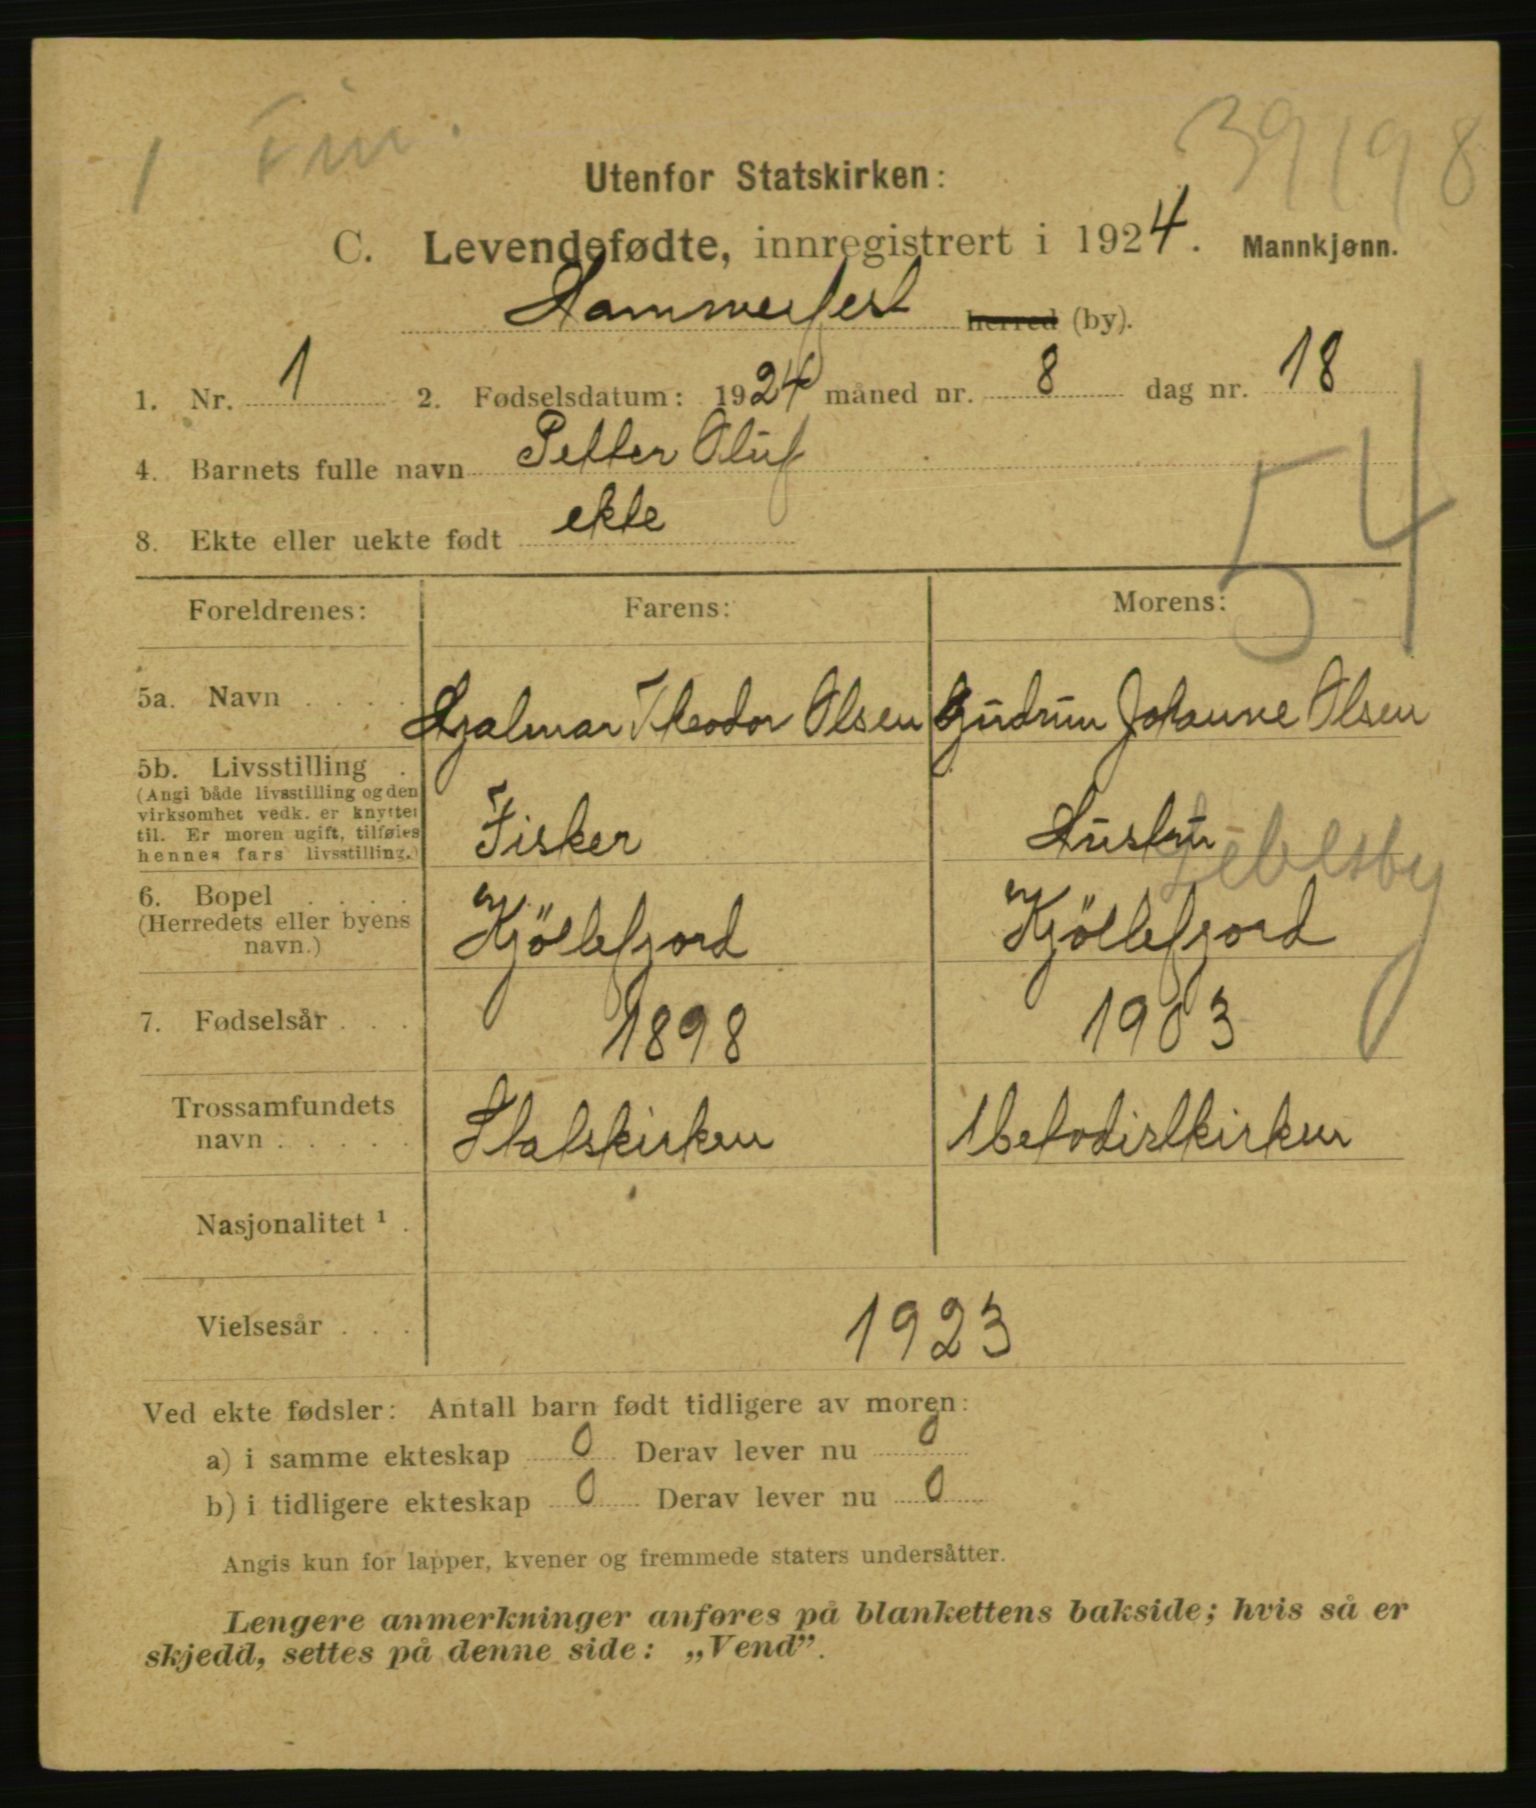 1 Fin. 39198
Utenfor Statskirken:
C. Levendefødte, innregistrert i 1924. Mannkjønn.
Hammerfest herred (by).
1. Nr. 1 2. Fødselsdatum: 1924 måned nr. 8 dag nr. 18
4. Barnets fulle navn Petter Oluf
54
8. Ekte eller uekte født ekte
Foreldrenes: Farens: Morens:
5a. Navn . . . . Hjalmar Theodor Olsen Gudrun Johanne Olsen
5b. Livsstilling .
(Angi både livsstilling og den
virksomhet vedk. er knyttet
til. Er moren ugift, tilføies
hennes fars livsstilling.)
Fisker Hustru
Lebesby
6. Bopel . . . .
(Herredets eller byens
navn.)
Kjöllefjord Kjöllefjord
7. Fødselsår . . . 1898 1903
Trossamfundets
navn . . . . . Statskirken Metodistkirken
Nasjonalitet ¹ .
Vielsesår . . . 1923
Ved ekte fødsler: Antall barn født tidligere av moren:
a) i samme ekteskap 0 Derav lever nu 0
b) i tidligere ekteskap 0 Derav lever nu 0
Angis kun for lapper, kvener og fremmede staters undersåtter.
Lengere anmerkninger anføres på blankettens bakside; hvis så er
skjedd, settes på denne side: „Vend”.